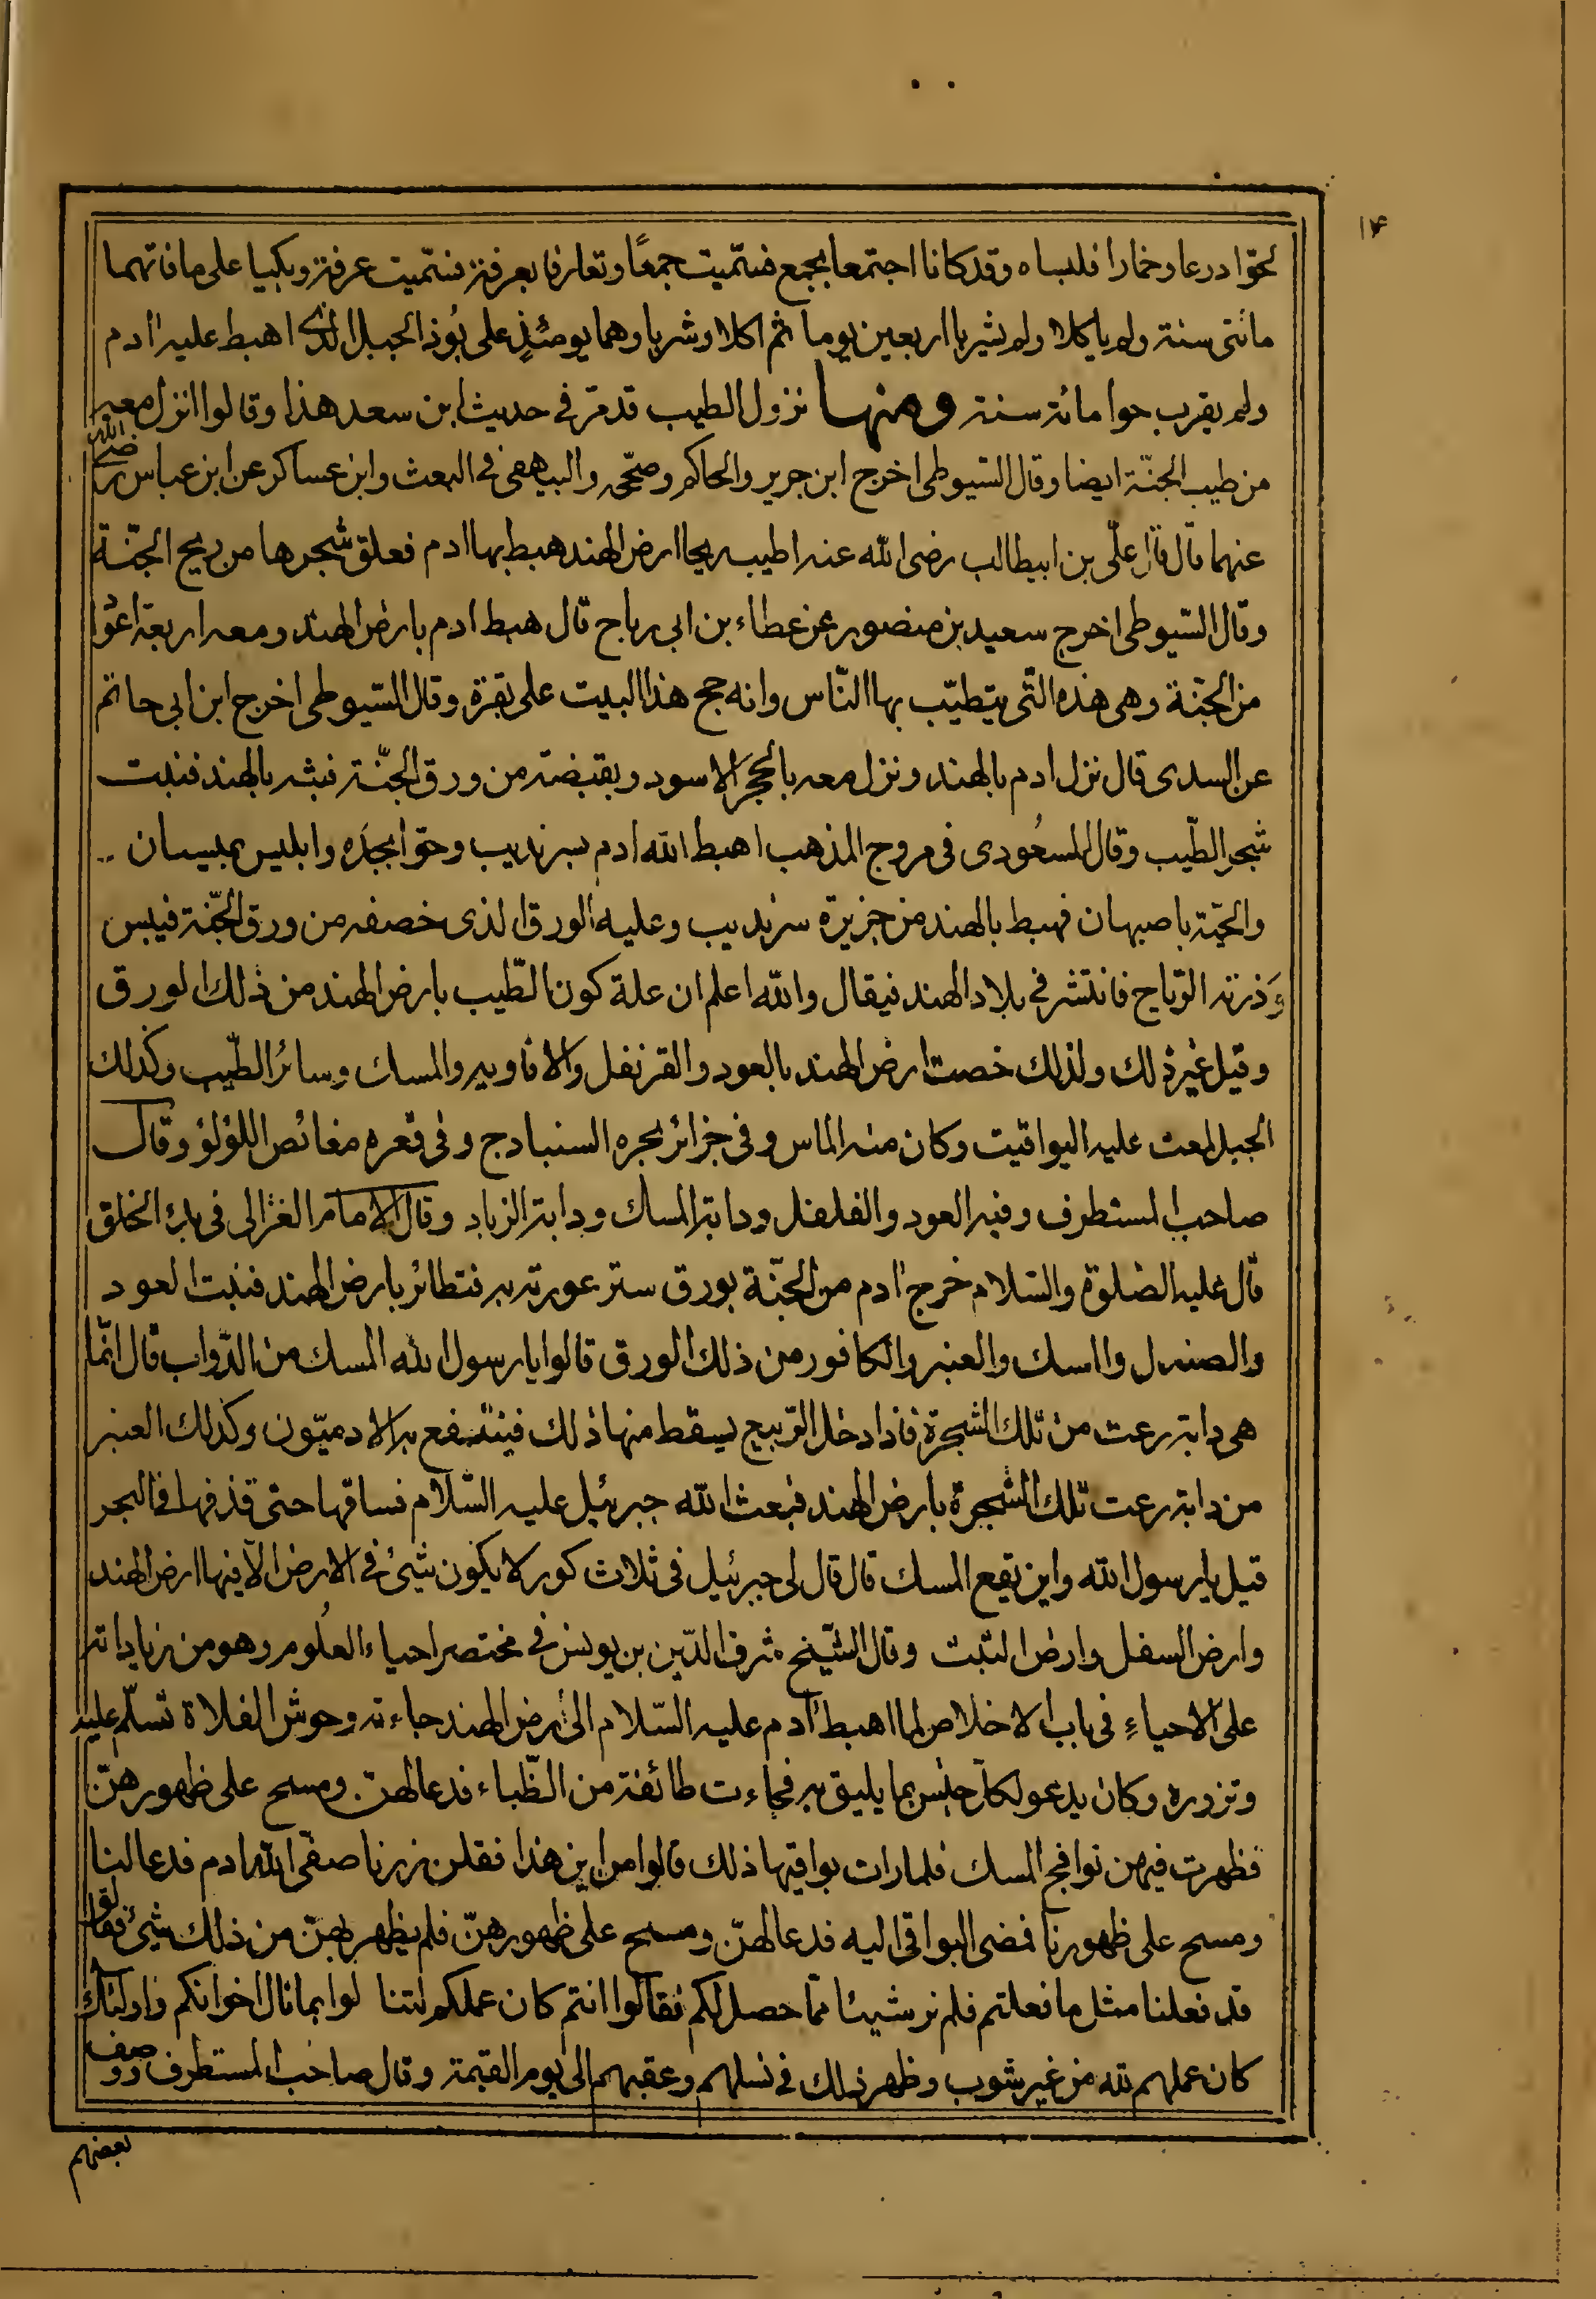 ١٤
لحوّا درعا وخمارا فلبساه وقد كانا اجتمعا بجمع فسمّيت جمعًا وتعارفا بعرفة فسمّيت عرفة وبكيا على ما فاتهما
مائتى سنة ولم ياكلا ولم يشربا اربعين يوما ثم اكلا وشربا وهما يومئذٍ على بُوذ الجبل الذى اهبط عليه ادم
ولم يقرب حوا مائة سنة ومنها نزول الطيب قد مرّ فى حديث ابن سعد هذا وقالوا انزل معه
من طيب الجنّة ايضا وقال السّيوطى اخرج ابن جرير والحاكم وصحّحه والبيهقى فى البعث وابن عساكر عن ابن عباس رضى الله
عنهما قال قال علّى بن ابيطالب رضى الله عنه اطيب ريحا ارض الهند هبط بها ادم فعلق شجرها من ريح الجنّة
وقال السّيوطى اخرج سعيد بن منصور عن عطاء بن ابى رباح قال هبط ادم بارض الهند ومعه اربعة اعوا
من الجنّة وهى هذه التّى يتطيّب بها النّاس وانه حج هذا البيت على بقرة وقال السّيوطى اخرج ابن ابى حاتم
عن السدى قال نزل ادم بالهند ونزل معه بالحجر الاسود وبقبضة من ورق الجنّة فبثه بالهند فنبت
شجر الطّيب وقال المسعُودى فى مروج المذهب اهبط الله ادم بسرنديب وحوّا بجدّه وابليس ببيسان
والحيّة باصبهان فهبط بالهند من جزيرة سرنديب وعليه الورق الذى خصفه من ورق الجنّة فيبس
وَذرته الرّياح فانتشر فى بلاد الهند فيقال والله اعلم ان علة كون الطّيب بارض الهند من ذلك الورق
وقيل غير ذلك ولذلك خصت ارض الهند بالعود والقرنفل والافاويه والمسك وسائر الطّيب وكذلك
الجبل لمعت عليه اليواقيت وكان منه الماس وفى جزائر بحره السنبادج وفى قعره مغائص اللؤلؤ وقال
صاحب المستطرف وفيه العود والفلفل ودابة المسك ودابة الزباد وقال الامام الغزالى فى بدء الخلق
قال عليه الصّلوة والسّلام خرج ادم من الجنّة بورق ستر عورته به فتطائر بارض الهند فنبت العود
والصندل والمسك والعنبر والكافور من ذلك الورق قالوا يا رسول الله المسك من الدّواب قال انّما
هى دابة رعت من تلك الشجرة فاذا دخل الرّبيع يسقط منها ذلك فينتفع به الادميّون وكذلك العنبر
من دابة رعت تلك الشجرة بارض الهند فبعث الله جبرئيل عليه السّلام فساقها حتى قذفها فى البحر
قيل يا رسول الله واين يقع المسك قال قال لى جبرئيل فى ثلاث كور لا يكون شئ فى الارض الّا فيها ارض الهند
وارض السفل وارض التبت وقال الشّيخ شرف الدّين بن يونس فى مختصر احياء العلُوم وهو من زياداته
على الاحياءِ فى باب الاخلاص لما اهبط ادم عليه السّلام الى ارض الهند جاءته وحوش الفلاة تسلّم عليه
وتزوره وكان يدعو لكل جنس بما يليق به فجاءت طائفة من الظّباء فدعا لهنّ ومسح على ظهورهنّ
فظهرت فيهن نوافج المسك فلما رات بواقيها ذلك قالوا من اين هذا فقلن زرنا صفّى الله ادم فدعا لنا
ومسح على ظهورنا فمضى البواقى اليه فدعا لهنّ ومسح على ظهورهنّ فلم يظهر لهنّ من ذلك شئ فقالوا
قد فعلنا مثل ما فعلتم فلم نر شيئا ممّا حصل لكم فقالوا انتم كان عملكم لتنالوا بما نال اخوانكم واولئك
كان عملهم لله من غير شوب وظهر ذلك فى نسلهم وعقبهم الى يوم القيمة وقال صاحب المستطرف وَوصف
بعضهم